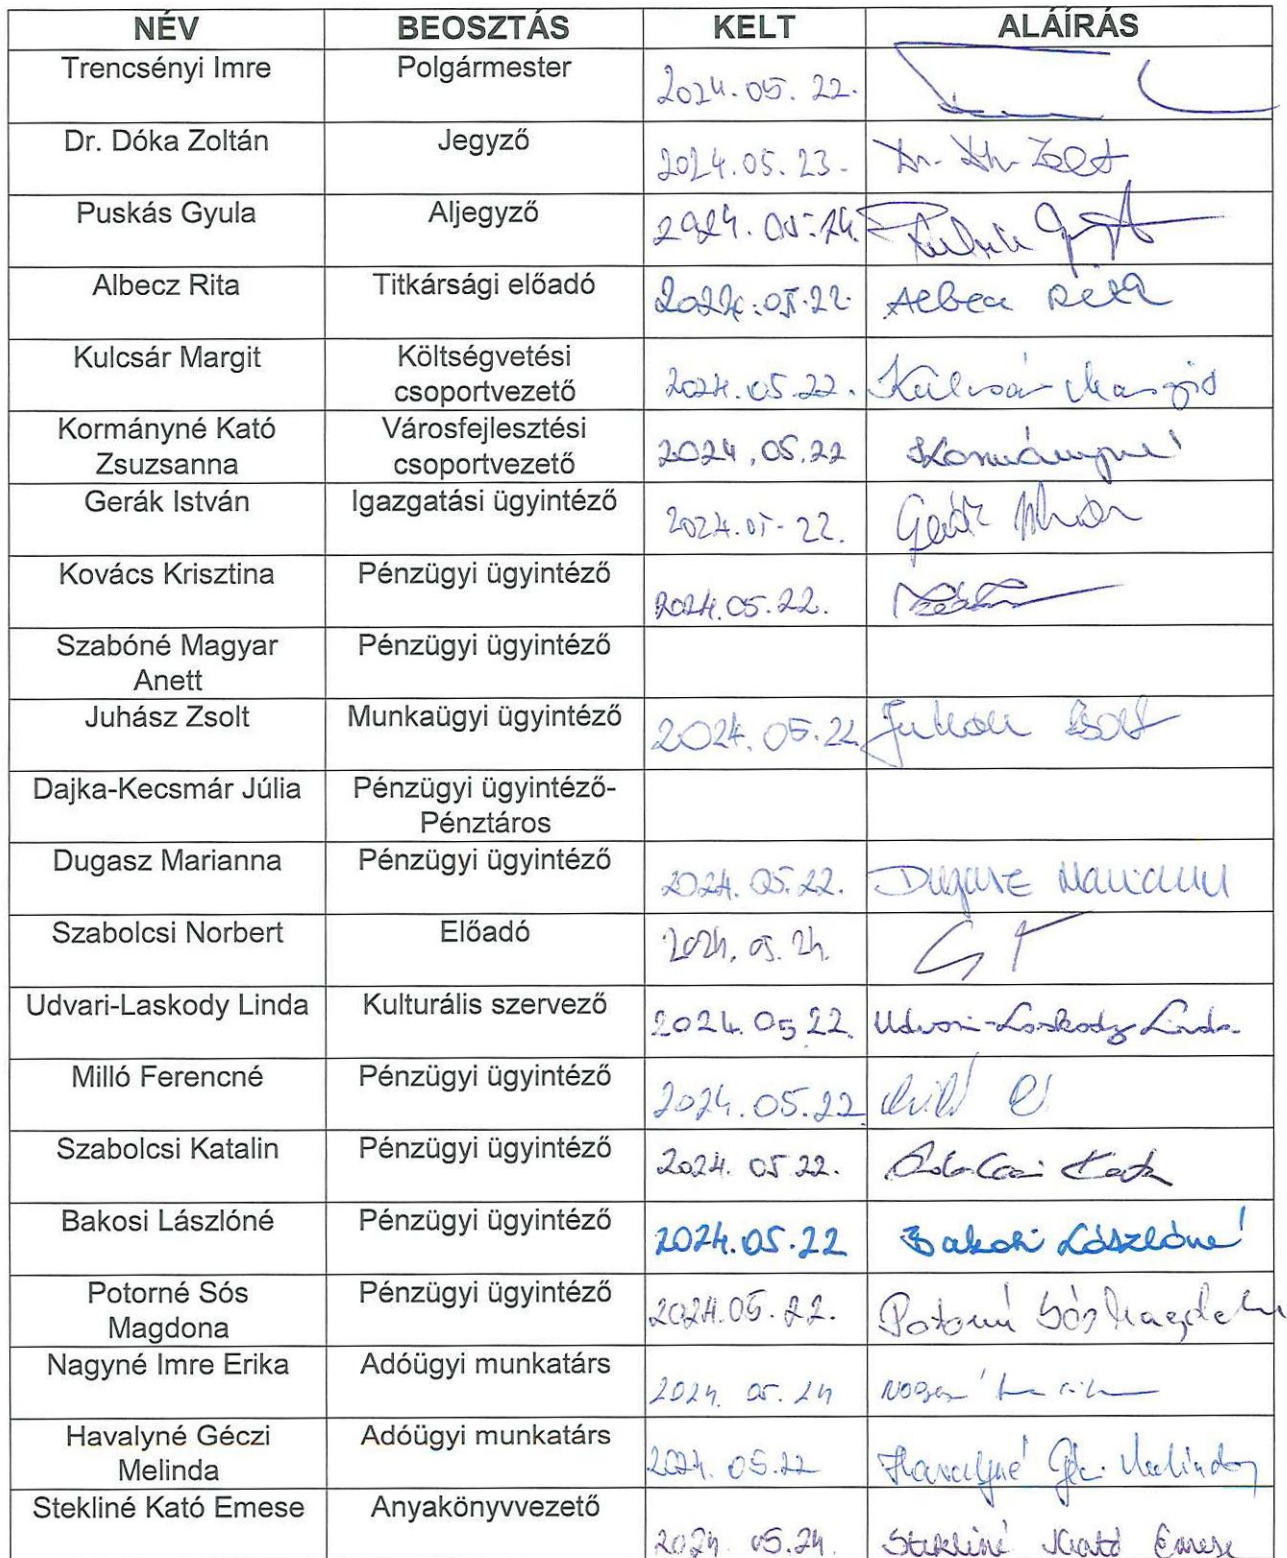 NÉV BEOSZTÁS KELT ALÁÍRÁS
Trencsényi Imre Polgármester 2024.05.22.
Dr. Dóka Zoltán Jegyző 2024.05.23. Dr.
Puskás Gyula Aljegyző 2024.05.24.
Albecz Rita Titkársági előadó 2024.05.22. Albecz Rita
Kulcsár Margit Költségvetési
csoportvezető 2024.05.22. Kulcsár Margit
Kormányné Kató Városfejlesztési
Zsuzsanna csoportvezető 2024.05.22 Kormányné
Gerák István Igazgatási ügyintéző 2024.05.22. Gerák István
Kovács Krisztina Pénzügyi ügyintéző 2024.05.22.
Szabóné Magyar Pénzügyi ügyintéző
Anett
Juhász Zsolt Munkaügyi ügyintéző 2024.05.22 Juhász Zsolt
Dajka-Kecsmár Júlia Pénzügyi ügyintéző-
Pénztáros
Dugasz Marianna Pénzügyi ügyintéző 2024.05.22. Dugasz Mariann
Szabolcsi Norbert Előadó 2024.05.24.
Udvari-Laskody Linda Kulturális szervező 2024.05.22. Udvari-Laskody Linda
Milló Ferencné Pénzügyi ügyintéző 2024.05.22
Szabolcsi Katalin Pénzügyi ügyintéző 2024.05.22.
Bakosi Lászlóné Pénzügyi ügyintéző 2024.05.22 Bakosi Lászlóné
Potorné Sós Pénzügyi ügyintéző
Magdona 2024.05.22. Potorné Sós
Nagyné Imre Erika Adóügyi munkatárs 2024.05.24
Havalyné Géczi Adóügyi munkatárs
Melinda 2024.05.22 Havalyné Géczi Melinda
Stekliné Kató Emese Anyakönyvvezető 2024.05.24. Stekliné Kató Emese